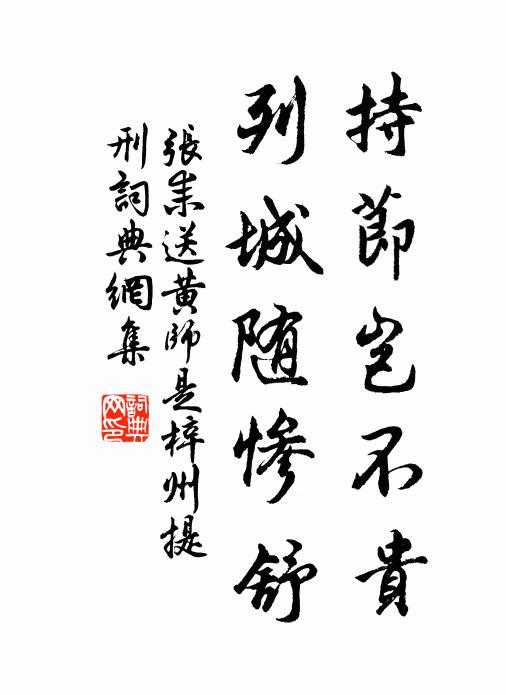 持節岂不貴
列城随慘舒
張耒送黄師是梓州提
刑詞典網集
詞典
网印